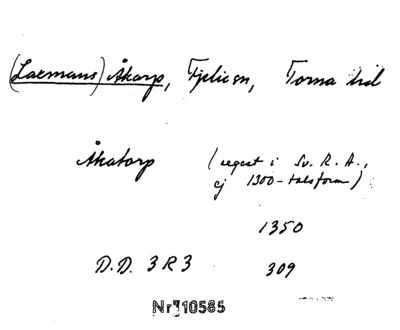 (Laxmans) Åkarp, Fjelie sn, Torna hd
Åkatorp (regest i Sv. R. A.,
ej 1300-talsform)
1350
D.D. 3 R 3 309
Nr 10585